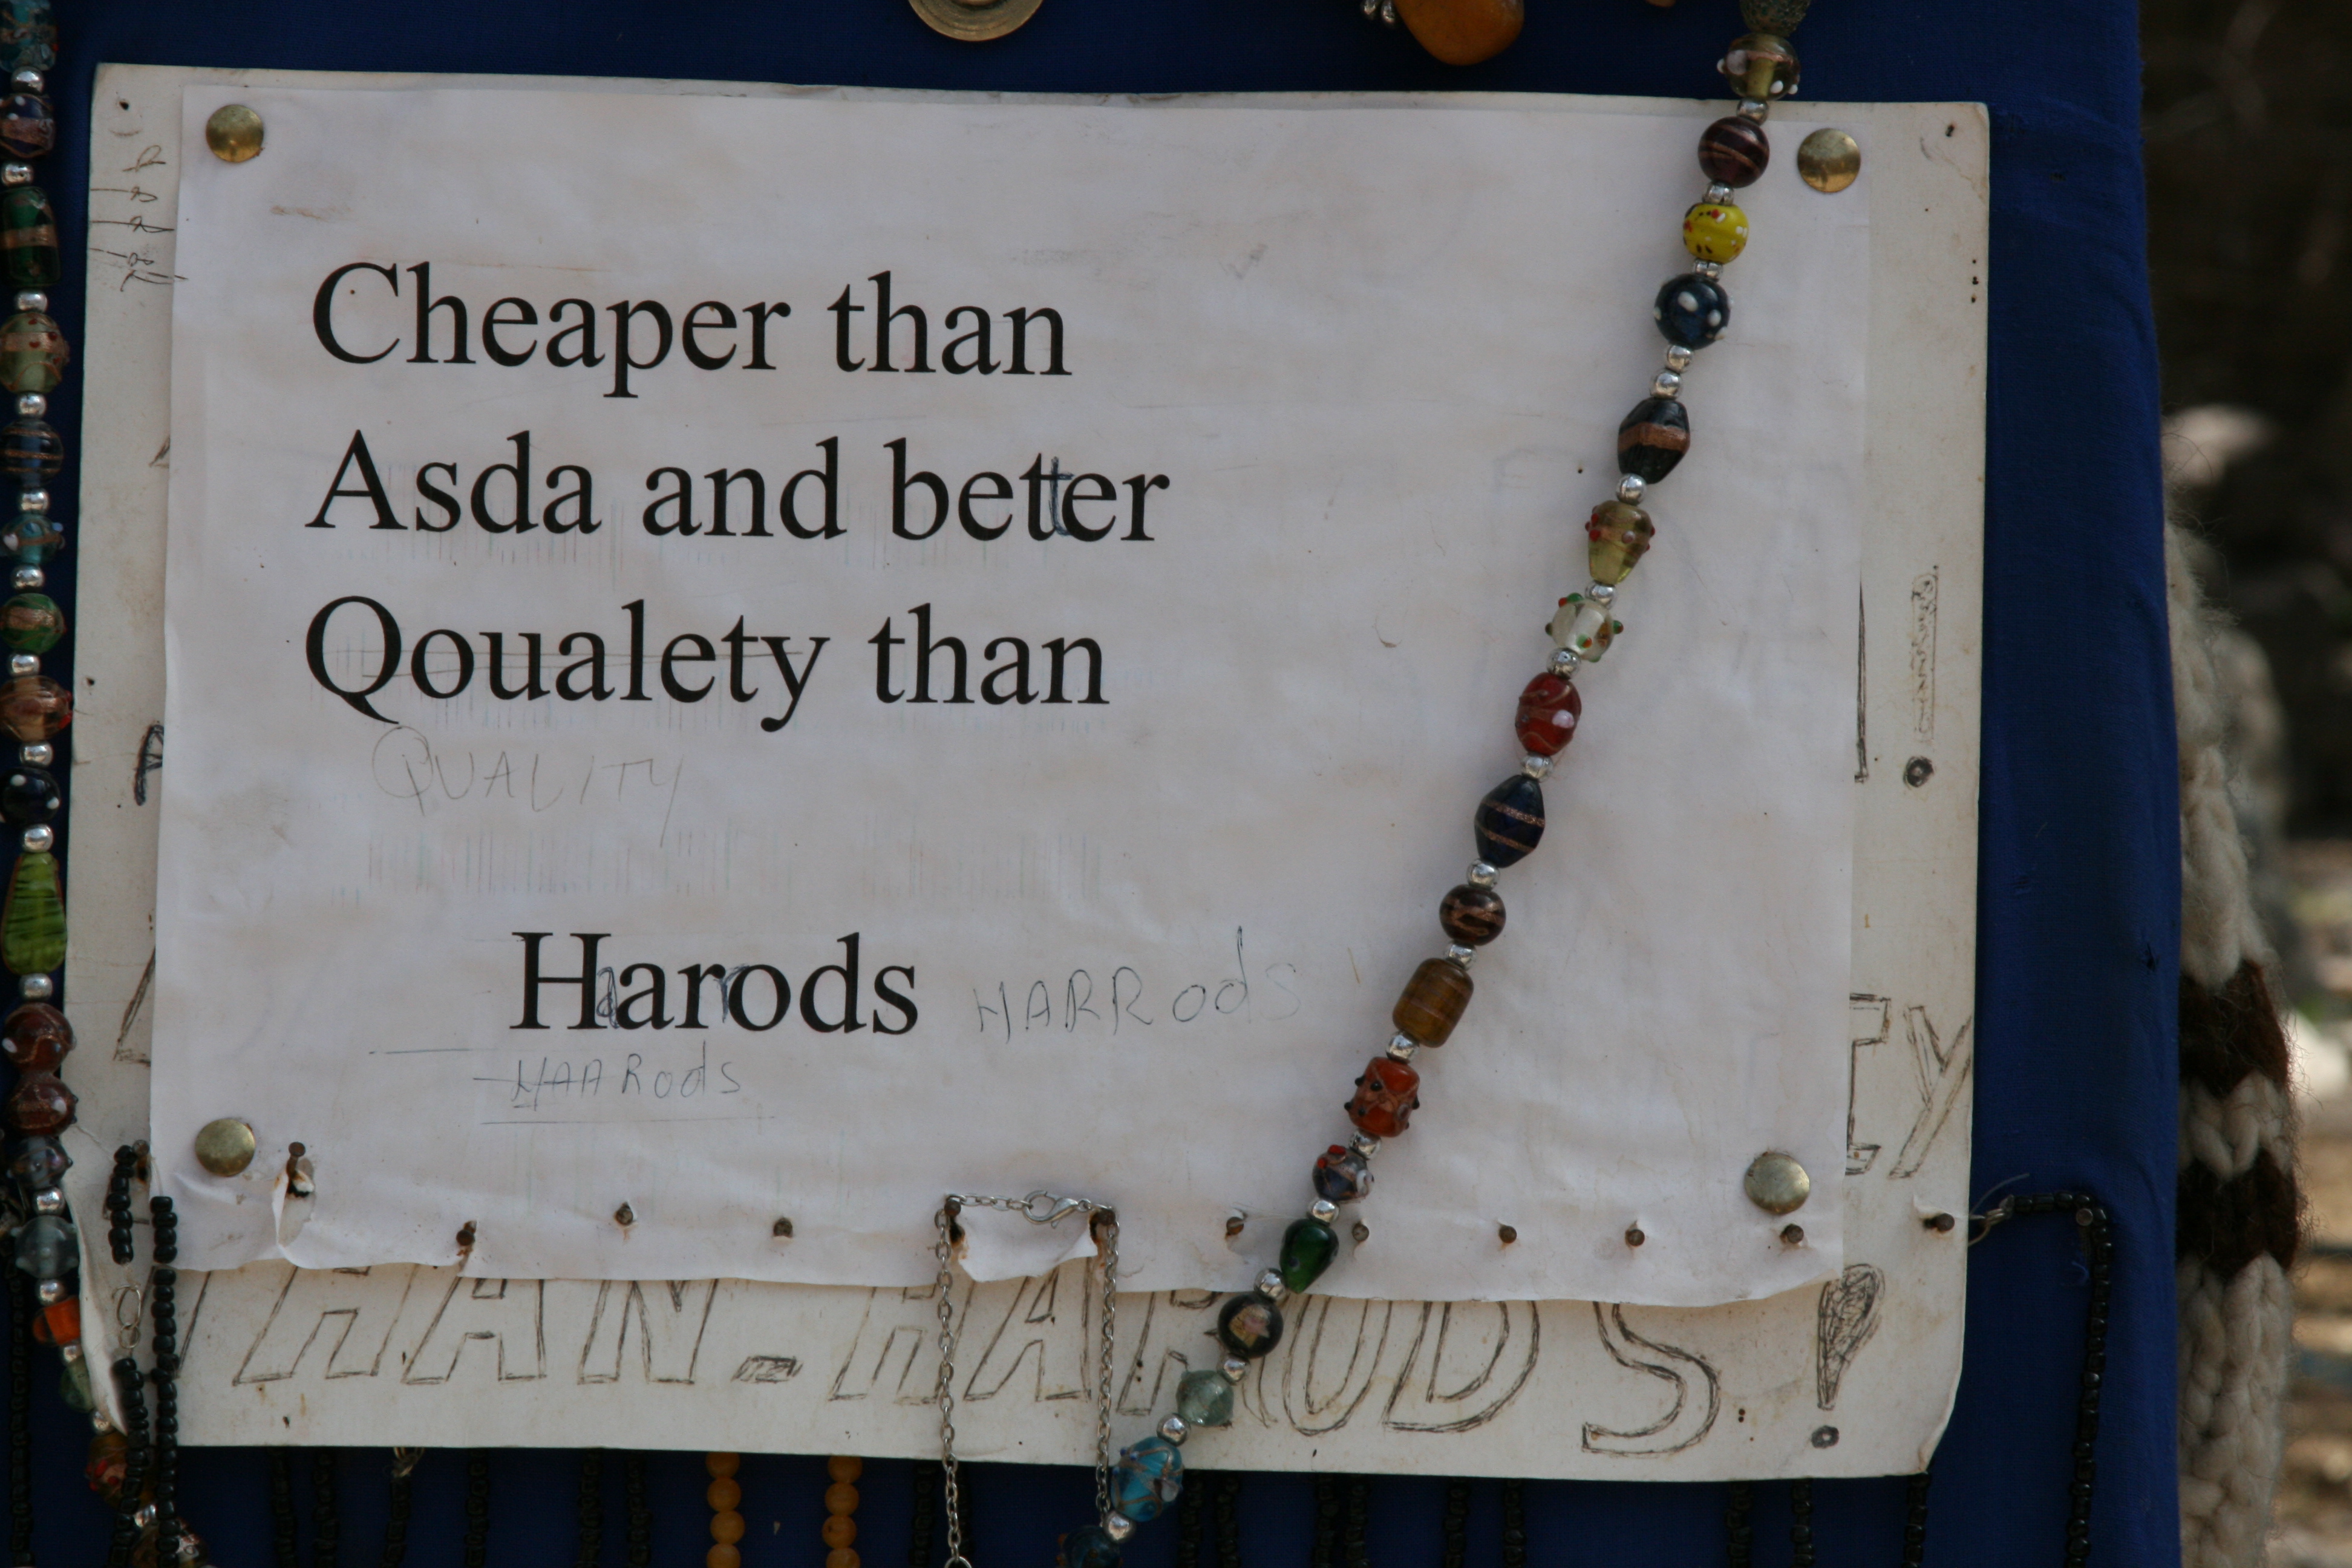 Cheaper than
Asda and beter
Qoualety than
QUALITY
Harods HARRods
HAARods
THAN - HARODS!